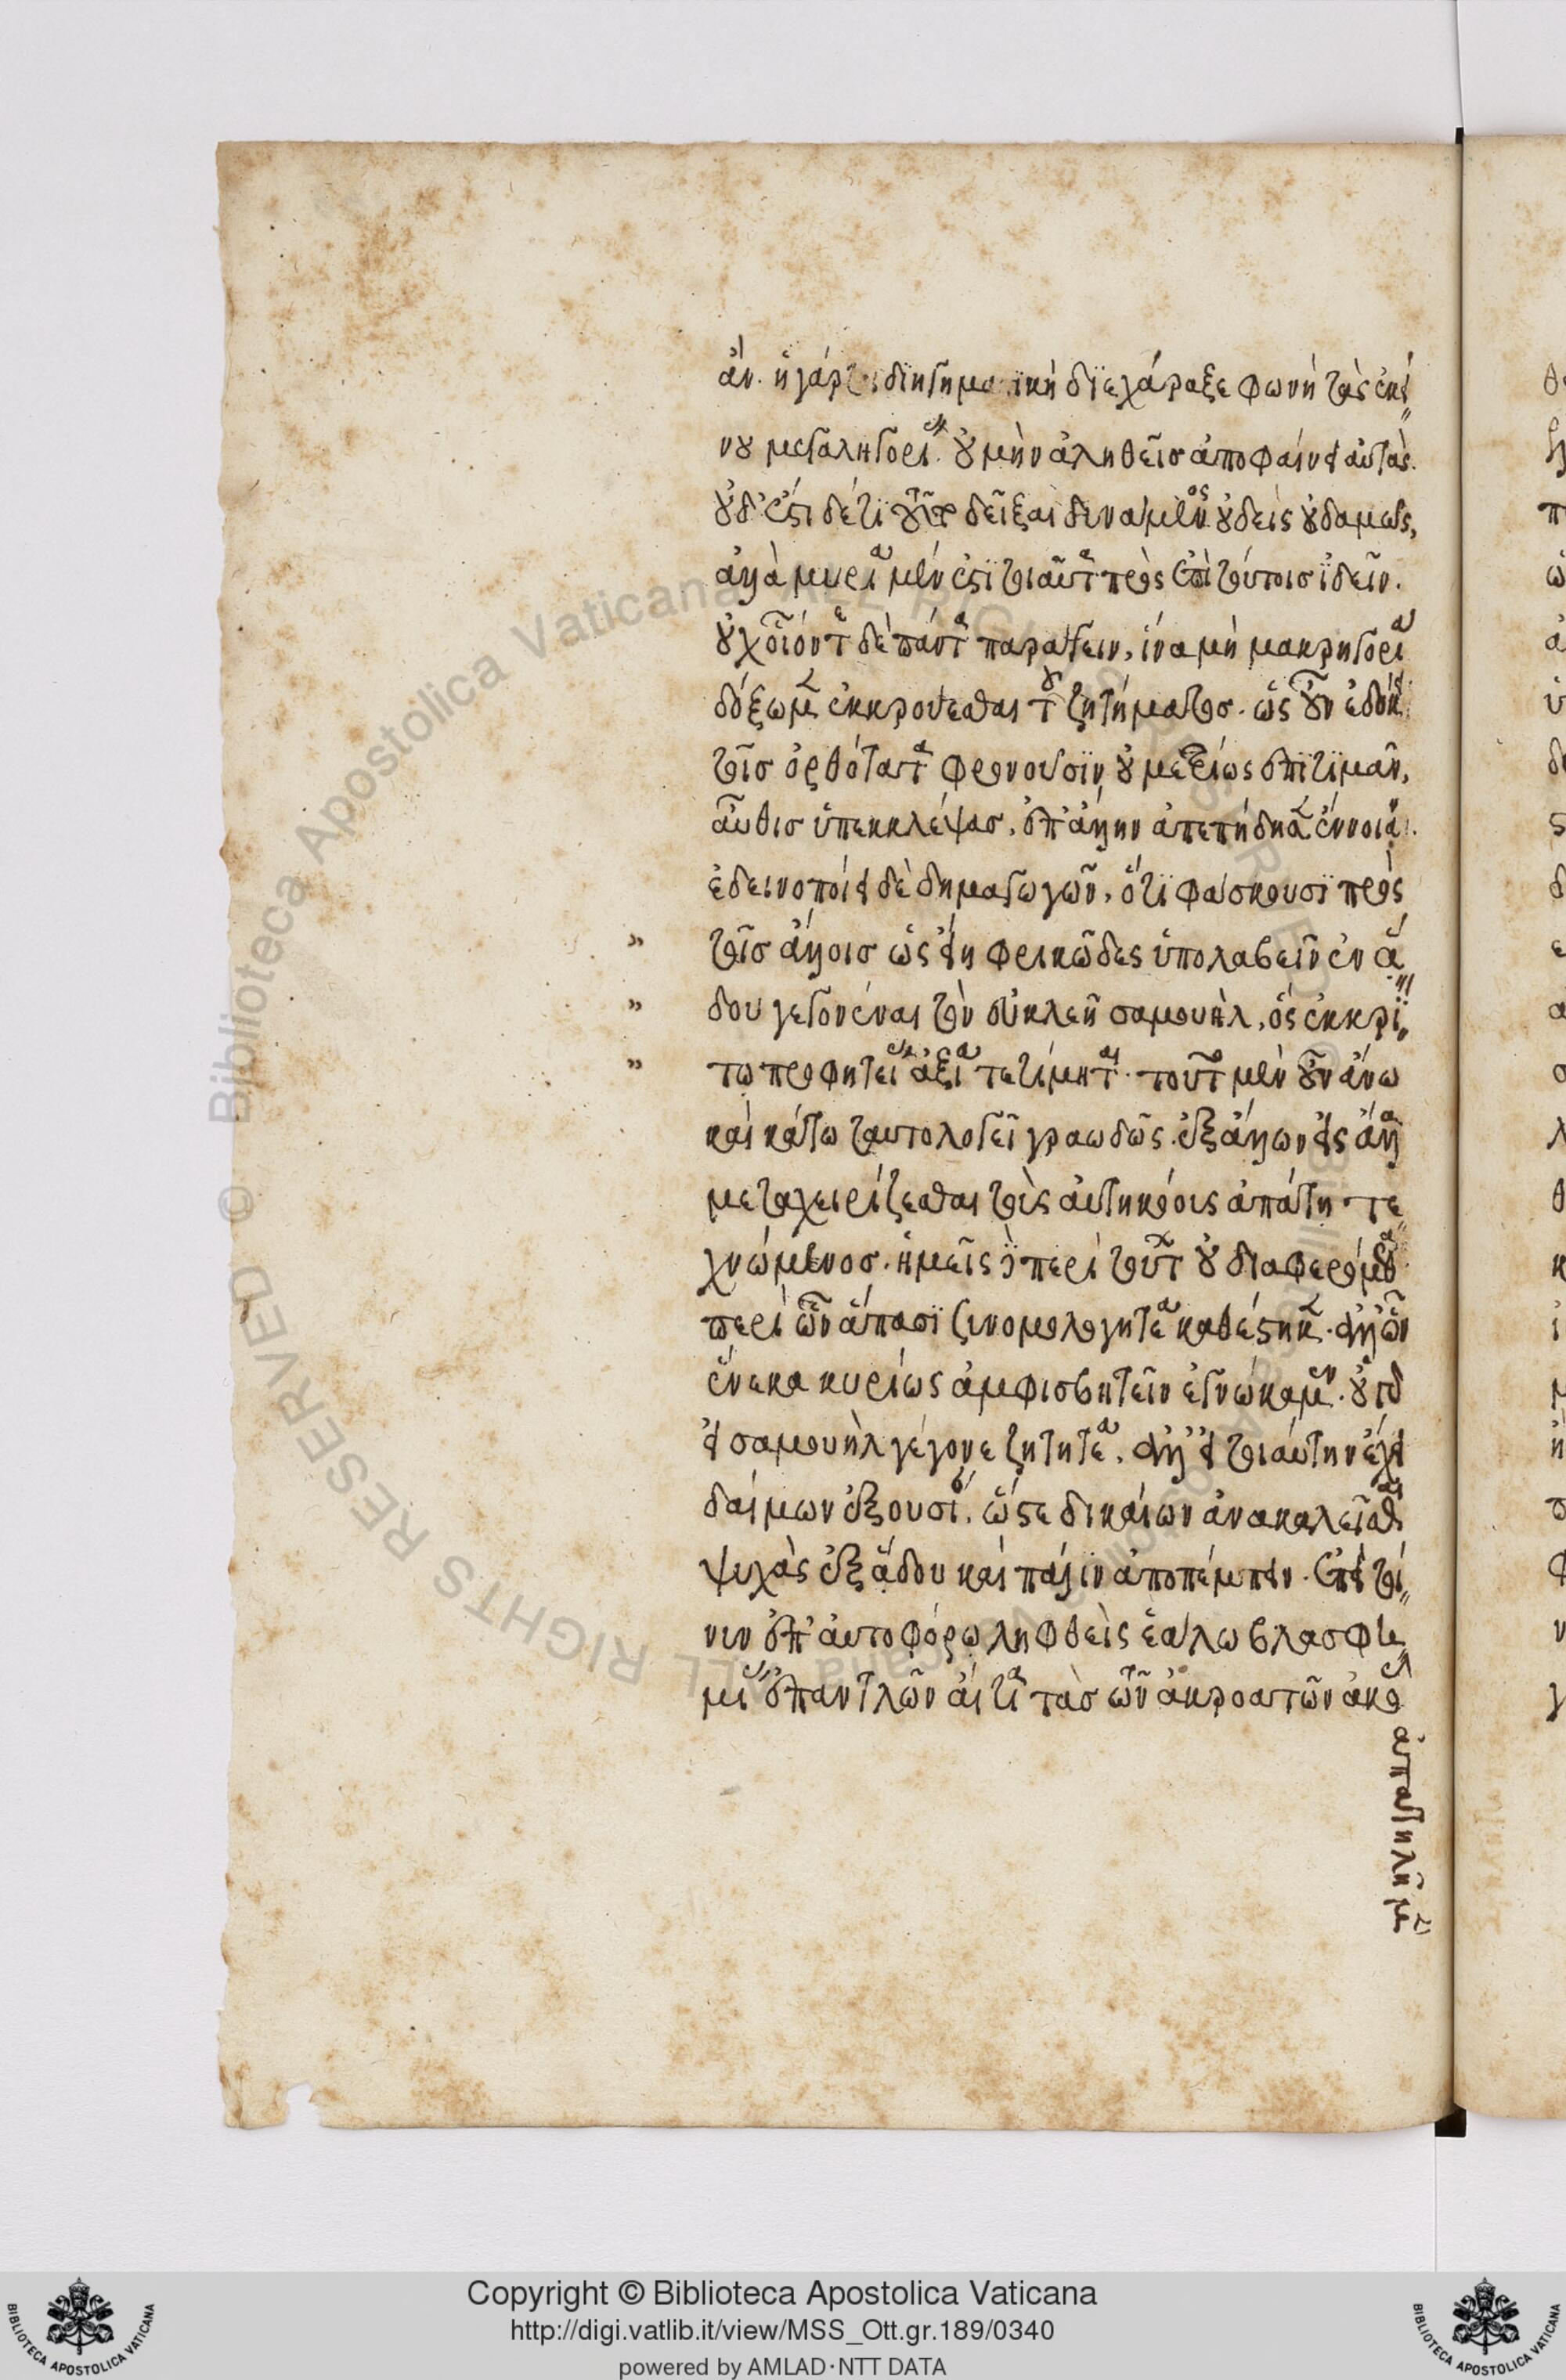 ἄν. ἡ γάρ τοι διηγηματικὴ διεχάραξε φωνὴ τὰς ἐκεί
νου μεγαληγορίας. οὐ μὴν ἀληθεῖσ ἀποφαίνει αὐτάς.
οὐδ' ἔστι δέ τι τούτων δεῖξαι δυνάμενος οὐδεὶς οὐδαμῶς,
ἀλλὰ μυρία μέν ἐστι τοιαῦτα πρὸς ἐπὶ τούτοισ ἰδεῖν.
οὐχ οἷόν τε δὲ πάντα παράγειν, ἵνα μὴ μακρηγορία
δόξωμεν ἐκκρούεσθαι τοῦ ζητήματοσ. ὡς οὖν ἐδόκει
τοῖσ ὀρθότατα φρονοῦσιν οὐ μετρίως ἐπιτιμᾶν,
αὖθισ ὑπεκκλέψασ, ἐπ' ἄλλην ἀπεπήδησεν ἔννοιαν.
ἐδεινοποίει δὲ δημαγωγῶν, ὅτι φάσκουσι πρὸς
τοῖσ ἄλλοισ ὡς εἴη φρικῶδες ὑπολαβεῖν ἐν ἅ
δου γεγονέναι τὸν εὐκλεῆ σαμουὴλ, ὃς ἐκκρί
τω προφητείας ἀξία τετίμηται. τοῦτο μὲν οὖν ἄνω
καὶ κάτω ταυτολογεῖ γραωδῶς. ἐξ ἄλλων εἰς ἄλλα
μεταχειρίζεσθαι τοὺς αὐτηκόους ἀπάτη τε
χνώμενοσ. ἡμεῖς δὲ περὶ τούτου οὐ διαφερόμεθα
περὶ ὧν ἅπασι συνομολογητέα καθέστηκεν. ἀλλ' ὧν
ἕνεκα κυρίως ἀμφισβητεῖν ἐγνώκαμεν. οὔτε
εἰ σαμουὴλ γέγονε ζητητέα, ἀλλ' εἰ τοιαύτην ἔχει
δαίμων ἐξουσίαν, ὥστε δικαίων ἀνακαλεῖσθαι
ψυχὰς ἐξ ἅδου καὶ πάλιν ἀποπέμπειν. ἐπεὶ τοί
νυν ἐπ' αὐτοφόρω ληφθεὶς ἑάλω βλασφη
μίας ἐπαντλῶν αἰτία τὰσ τῶν ἀκροατῶν ἀκοὰς
ἀπατηλῆ με